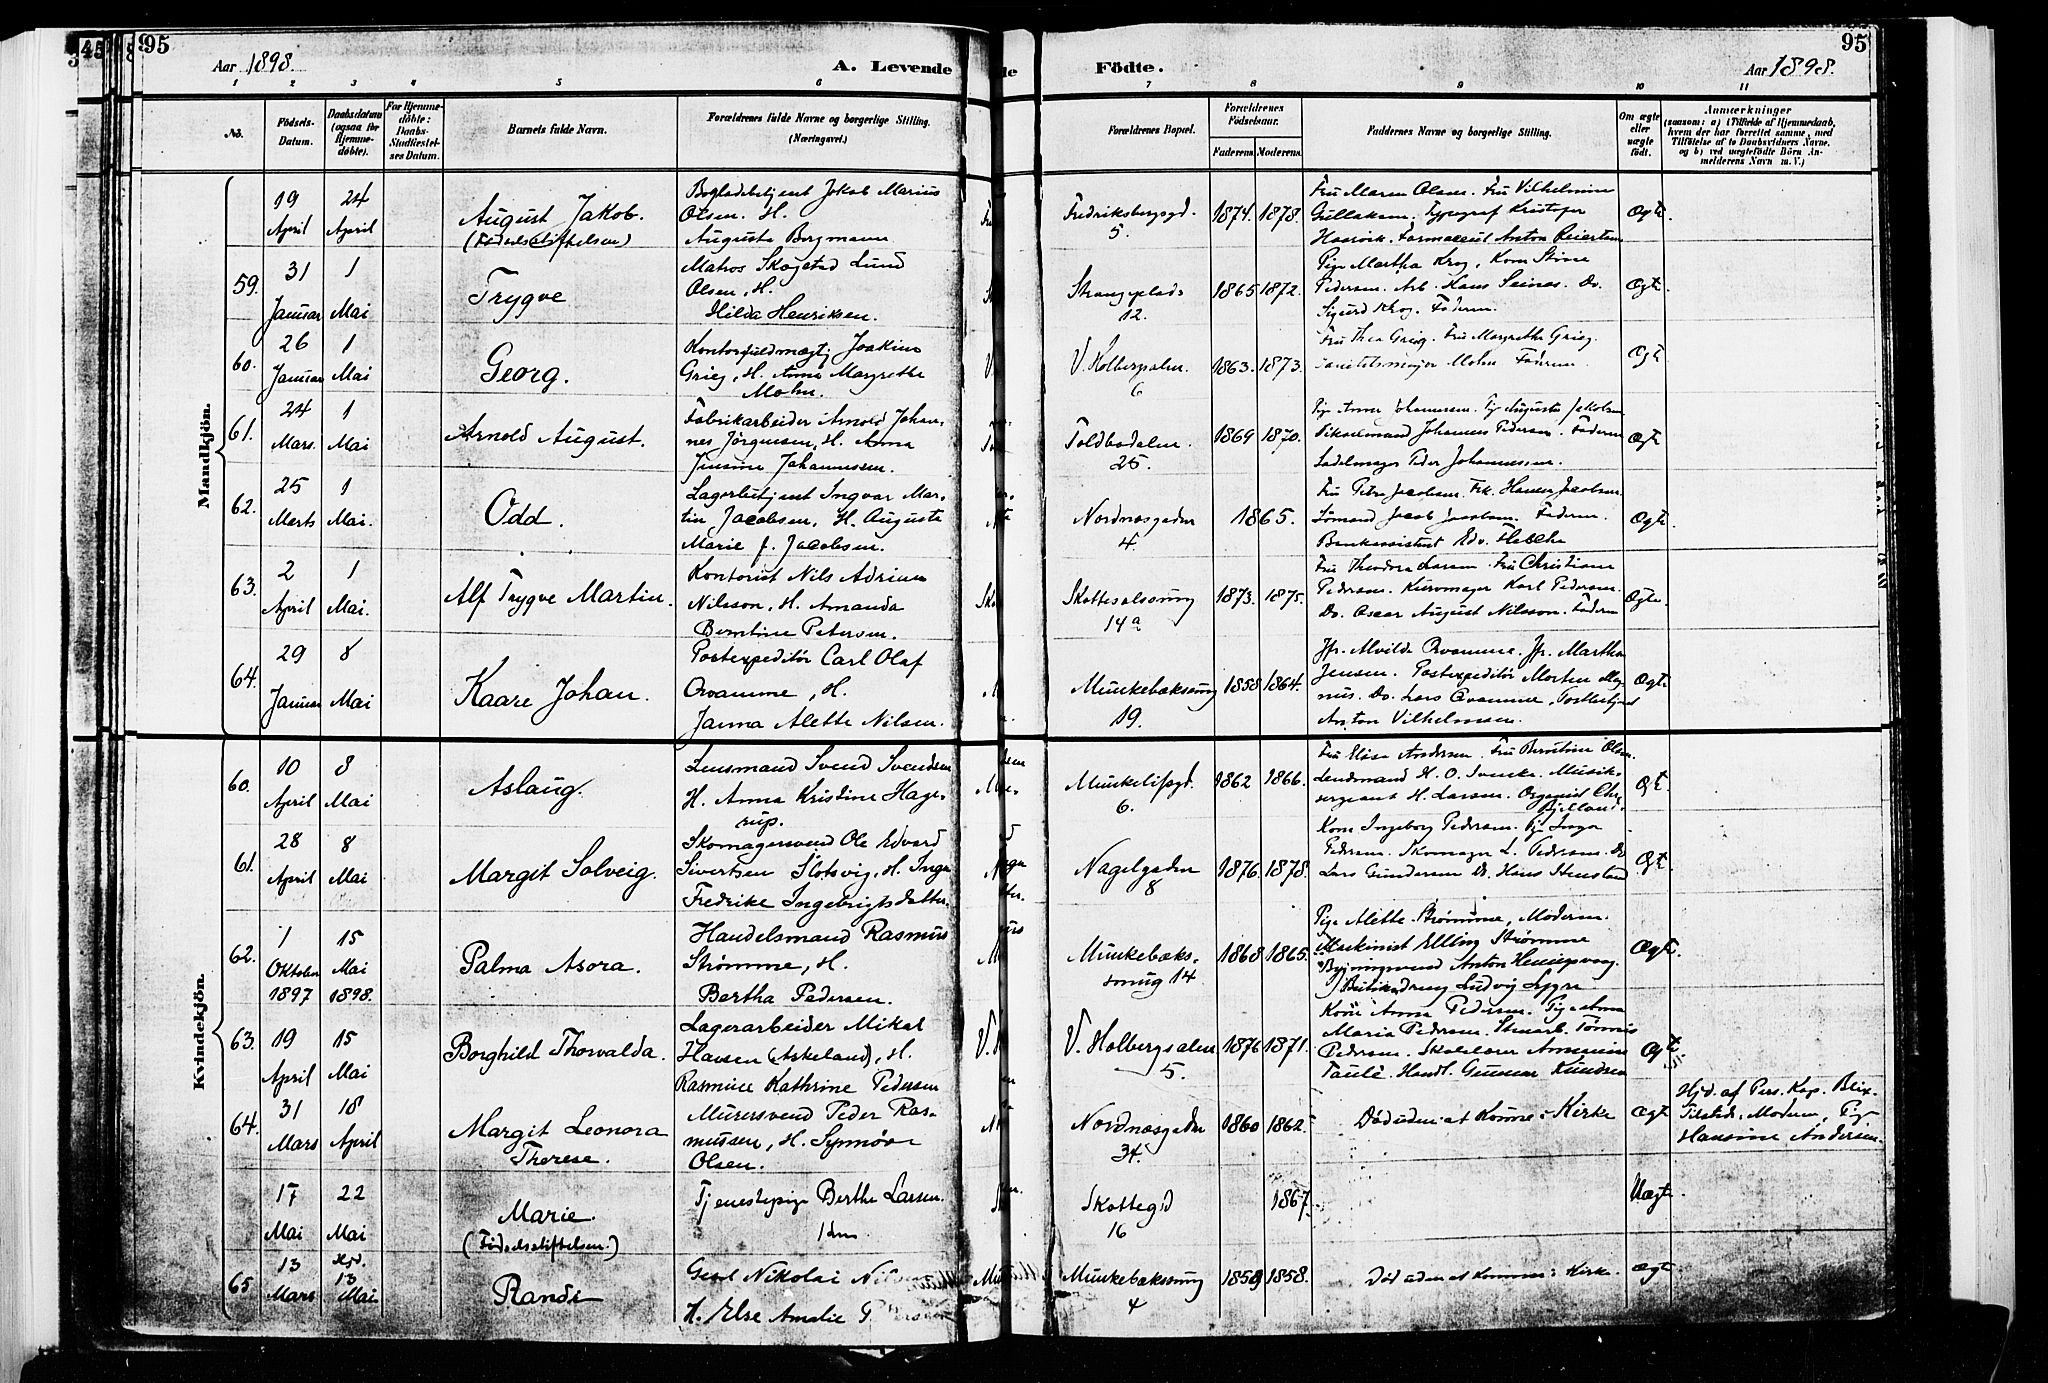 95
Aar 1898.
A. Levende
Födte.
Aar 1898.
95
1 2 3 4 5 6 7 8 9 10 11
No.
Födsels-Datum.
Daabsdatum (ogsaa for Hjemmedöbte).
For Hjemmedöbte: Daabs-Stadfæstelses Datum.
Barnets fulde Navn.
Forældrenes fulde Navne og borgerlige Stilling. (Næringsvei.)
Forældrenes Bopæl.
Forældrenes Födselsaar.
Faderens. Moderens.
Faddernes Navne og borgerlige Stilling.
Om ægte eller uægte födt.
Anmærkninger
(saasom: a) i Tilfælde af Hjemmedaab, hvem der har forrettet samme, med Tilföielse af to Daabsvidners Navne. og b) ved uægtefödte Börn Anmelderens Navn m. V.)
Mandkjön.
19 April
24 April
August Jakob.
(Fødselsstiftelsen)
Jakob Marius
Olsen. H.
Augusta Bergmann
Fredriksbergsgd.
5.
1874. 1878.
Fru Maren Olsen. Fru Vilhelmine
Typograf Kristofer
Farmaceut Anton
Ægte
59.
31 Januar
1 Mai
Trygve
Matros Skogstad Lund
Olsen, H.
Hilda Henriksen.
Strangeplads
12.
1865 1872.
Pige Martha Krog, Kone Stine
Pedersen. Arb. Hans Do.
Sigurd Krog. Faderen.
Ægte.
60.
26 Januar
1 Mai
Georg.
Kontorfuldmægtig Joakim
Grieg, H. Anna Margrethe
Mohn.
V. Holbergsalm.
6
1863. 1873.
Fru Thea Grieg. Fru Margrethe Grieg.
Sanitetsmajor Mohn Faderen
Ægte
61.
24 Mars.
1 Mai
Arnold August.
Fabrikarbeider Arnold Johan-
nes Jørgensen, H. Anna
Jensine Johannessen.
Toldbodalm.
25.
1869 1870.
Pige Anna Johannesen. Pige Augusta Jakobsen
Johannes Pedersen. Faderen
Sadelmager Peder Johannessen.
Ægte
62.
25 Marts
1 Mai.
Odd.
Lagerbetjent Ingvar Mar-
tin Jacobsen, H. Augusta
Marie f. Jacobsen.
Nordnæsgaden
4.
1865.
Fru Petra Jacobsen. Frk. Hanna Jacobsen
Sømand Jacob Jacobsen. Faderen.
Bankassistent Edv.
Ægte
63.
2 April
1 Mai.
Alf Trygve Martin.
Kontorist Nils Adrian
Nilsson, H. Amanda
Berntine Petersen.
Skottesalssmug
14a
1873. 1875.
Fru Theodora Larsen. Fru Christiane
Pedersen. Kurvmager Karl Pedersen.
Do. Oscar August Nilsson. Faderen
Ægte.
64.
29 Januar
8 Mai
Kaare Johan.
Postexpeditør Carl Olaf
Qvamme, H.
Janna Alette Nilsen.
Munkebæksmug
19.
1858 1864.
Jfr. Alvilde Qvamme. Jfr. Martha
Jensen. Postexpeditør Morten Mag-
nus. Do. Lars Qvamme, Postbetjent
Anton Vilhelmsen.
Ægte
Kvindekjön.
60.
10 April
8 Mai
Aslaug.
Lensmand Svend Svendsen
H. Anna Kristine Hage-
rup.
Munkelifsgd.
6.
1862 1866.
Fru Elisa Andersen. Fru Berntine Olsen.
Lendsmand H. O. Musik-
sergeant H. Larsen. Organist Chr.
Bjelland.
Ægt.
61.
28 April
8 Mai
Margit Solveig.
Skomagersvend Ole Edvard
Sivertsen Slotsvig, H. Inga
Fredrike Ingebrigtsdatter.
Nagelgaden
8
1876. 1878.
Kone Ingeborg Pedersen. Pige Inga
Pedersen. Skomager L. Pedersen. Do
Lars Gundersen Do. Hans
Ægt.
62.
1 Oktober 1897
15 Mai 1898.
Palma Asora.
Handelsmand Rasmus
Strømme, H.
Bertha Pedersen.
Munkebæks-
smug 14
1868 1865.
Pige Alette Strømme, Moderen.
Maskinist Elling Strømme
Anton
Ludvig Lygre
Ægte.
63.
19 April
15 Mai
Borghild Thorvalda.
Lagerarbeider Mikal
Hansen (Askeland), H.
Rasmine Kathrine Pedersen
V. Holbergsalm
5.
1876 1871.
Kone Anna Pedersen. Pige Anna
Maria Pedersen. Stenarb. Tønnes
Pedersen. Skolelærer
Handl. Gunnar Knudsen
Ægte
64.
31 Mars
18 April
Margit Leonora
Therese.
Murersvend Peder Ras-
mussen, H. Synnøve
Olsen.
Nordnæsgaden
34.
1860 1862
Død uden at komme i Kirke
Ægte
Hjd. af Pers. Kap. Blix.
Tilstede: Moderen, Pige
Hansine Andersen.
17 Mai
22 Mai
Marie.
(Fødselsstiftelsen.)
Tjenestepige Berthe Larsen.
Skottegd
16
1867.
Uægte.
65
13 Mars
Hjd. 13 Mai
Randi
Nikolai
H. Else Amalie
Munkebæksmug
4
1859 1858.
Død uden at komme i Kirke.
Ægte